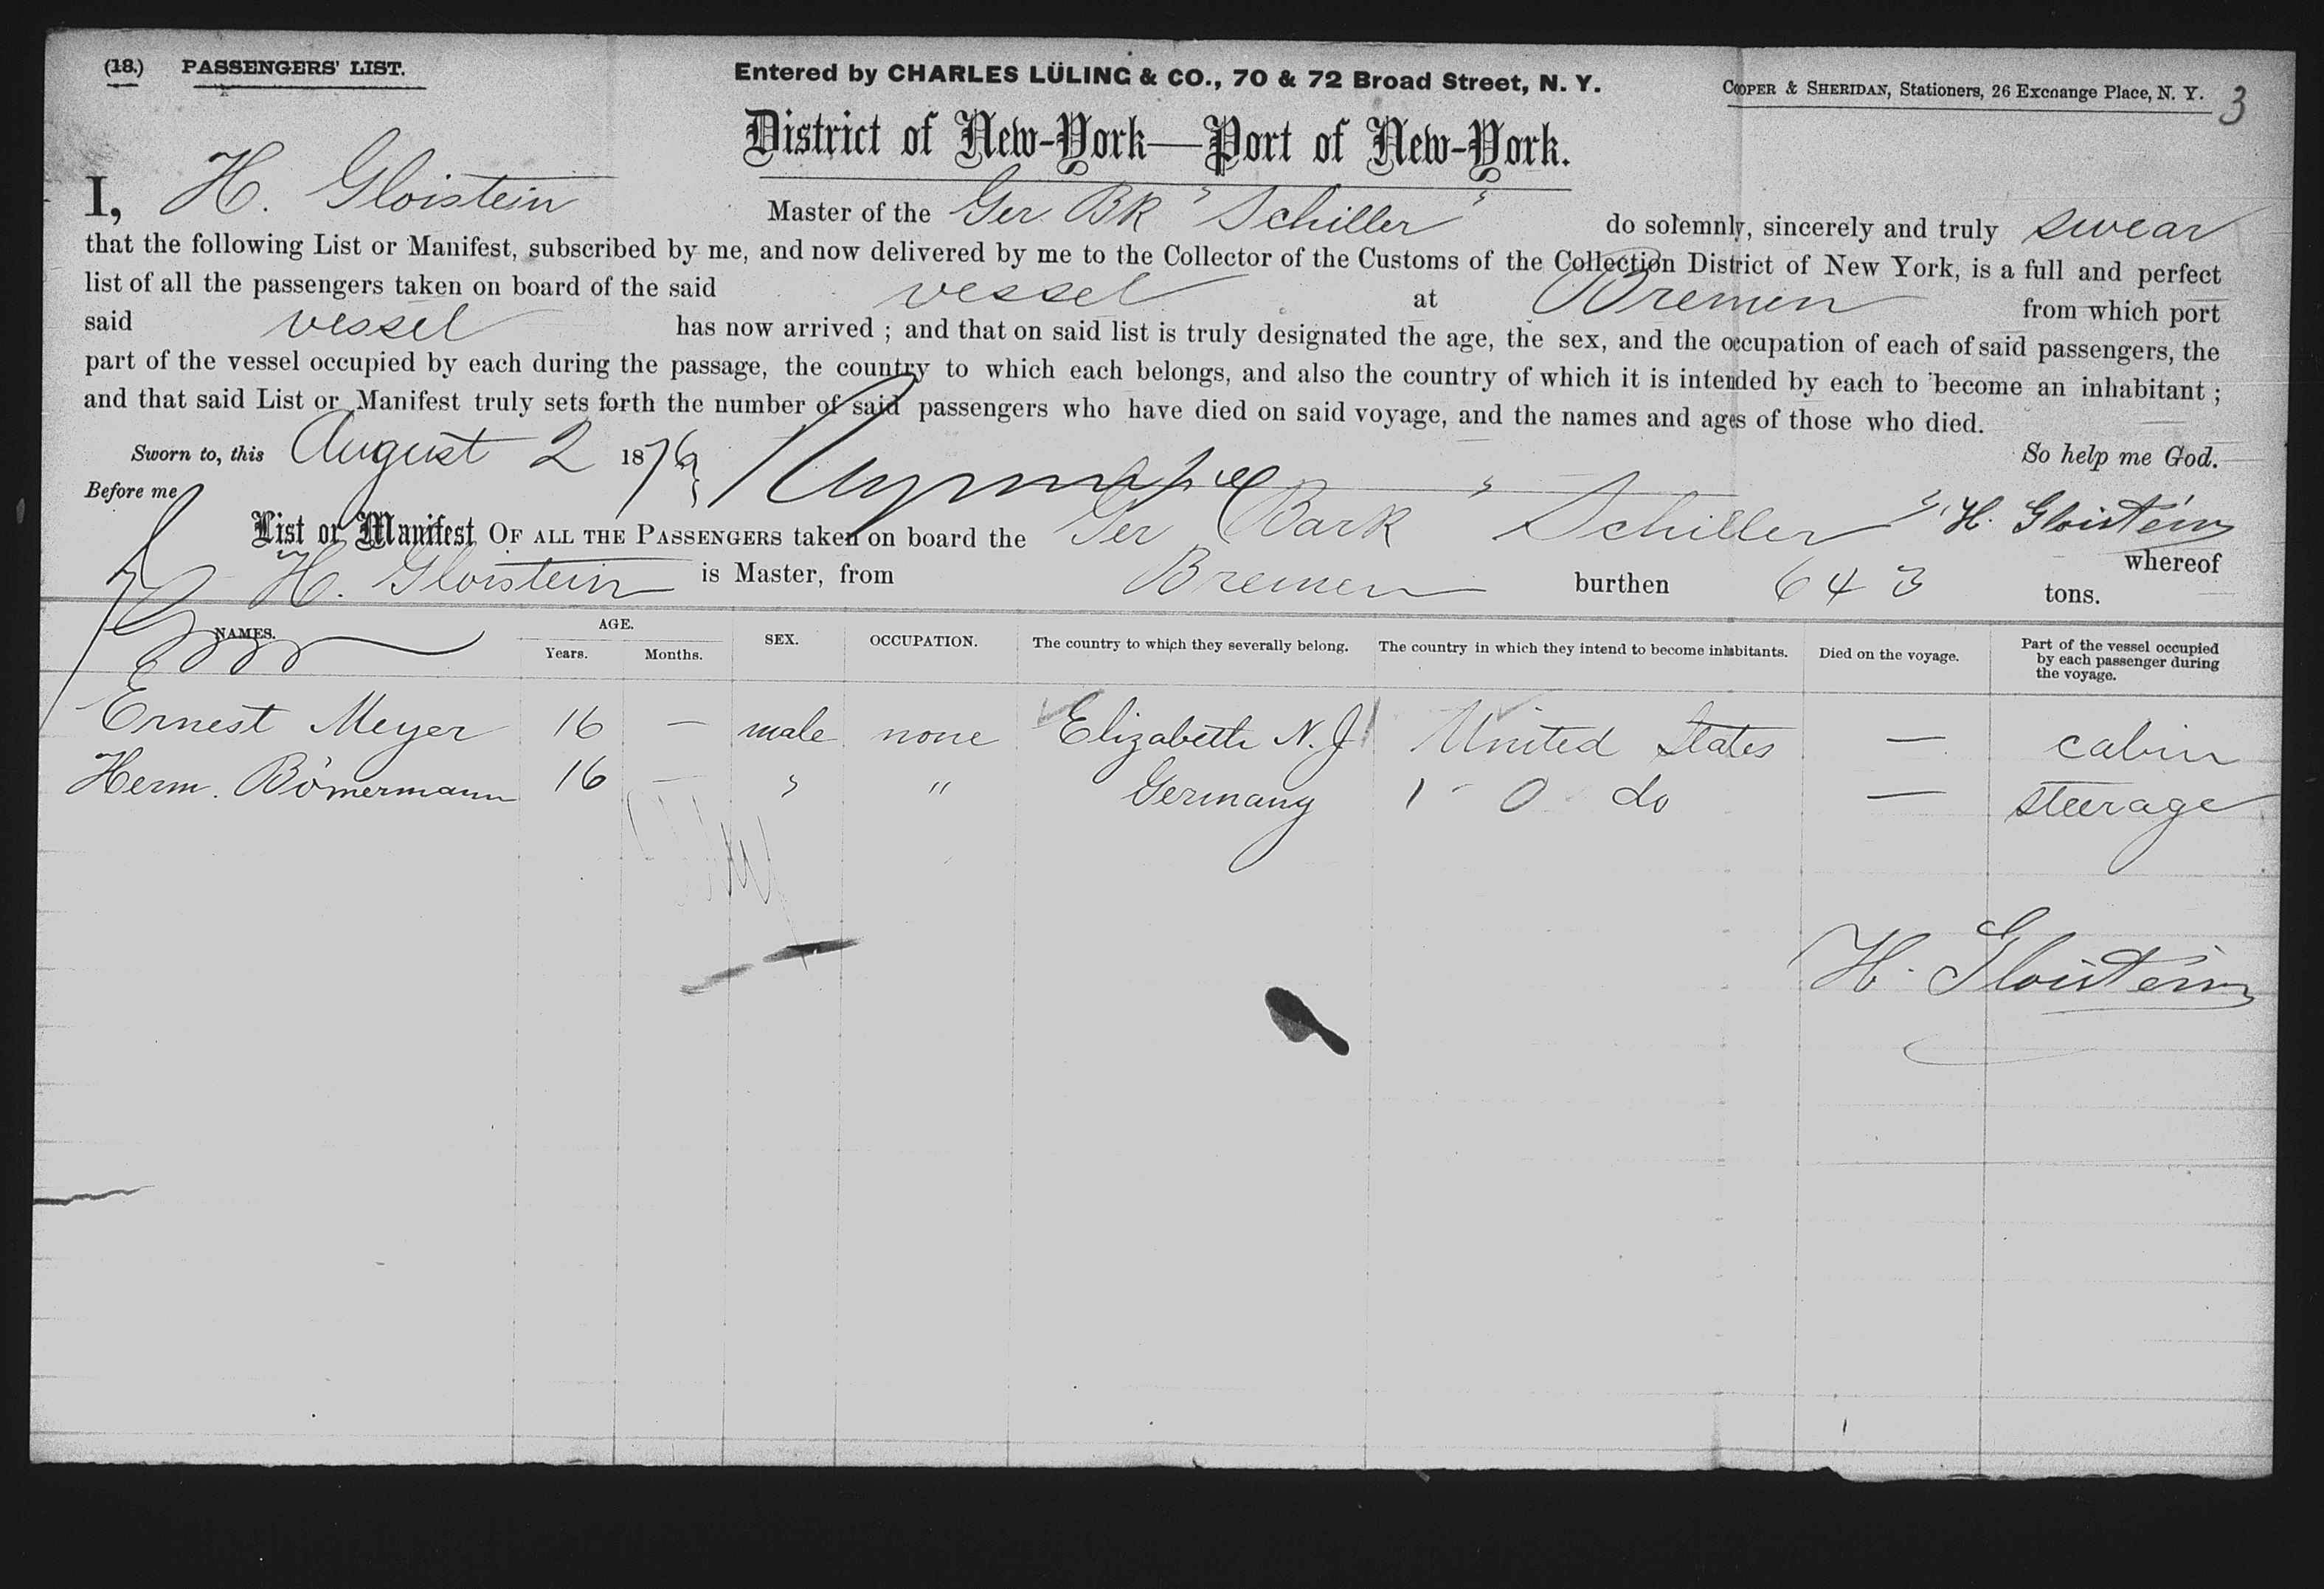 (18.) PASSENGERS' LIST.
Entered by CHARLES LÜLING & CO., 70 & 72 Broad Street, N. Y.
COOPER & SHERIDAN, Stationers, 26 Exchange Place, N. Y. 3
District of New-York—Port of New-York.
I, H. Gloistein Master of the Ger. Bk "Schiller" do solemnly, sincerely and truly swear
that the following List or Manifest, subscribed by me, and now delivered by me to the Collector of the Customs of the Collection District of New York, is a full and perfect
list of all the passengers taken on board of the said vessel at Bremen from which port
said vessel has now arrived ; and that on said list is truly designated the age, the sex, and the occupation of each of said passengers, the
part of the vessel occupied by each during the passage, the country to which each belongs, and also the country of which it is intended by each to become an inhabitant ;
and that said List or Manifest truly sets forth the number of said passengers who have died on said voyage, and the names and ages of those who died.
Sworn to, this August 2 1876 So help me God.
Before me
H. Gloistein
List or Manifest OF ALL THE PASSENGERS taken on board the Ger Bark "Schiller" whereof
H. Gloistein is Master, from Bremen burthen 643 tons.
NAMES. AGE. Years. Months. SEX. OCCUPATION. The country to which they severally belong. The country in which they intend to become inhabitants. Died on the voyage. Part of the vessel occupied by each passenger during the voyage.
Ernest Meyer 16 — male none Elizabeth N.J. United States — cabin
Herm. Bömermann 16 — " " Germany 1 - 0 do — steerage
H. Gloistein